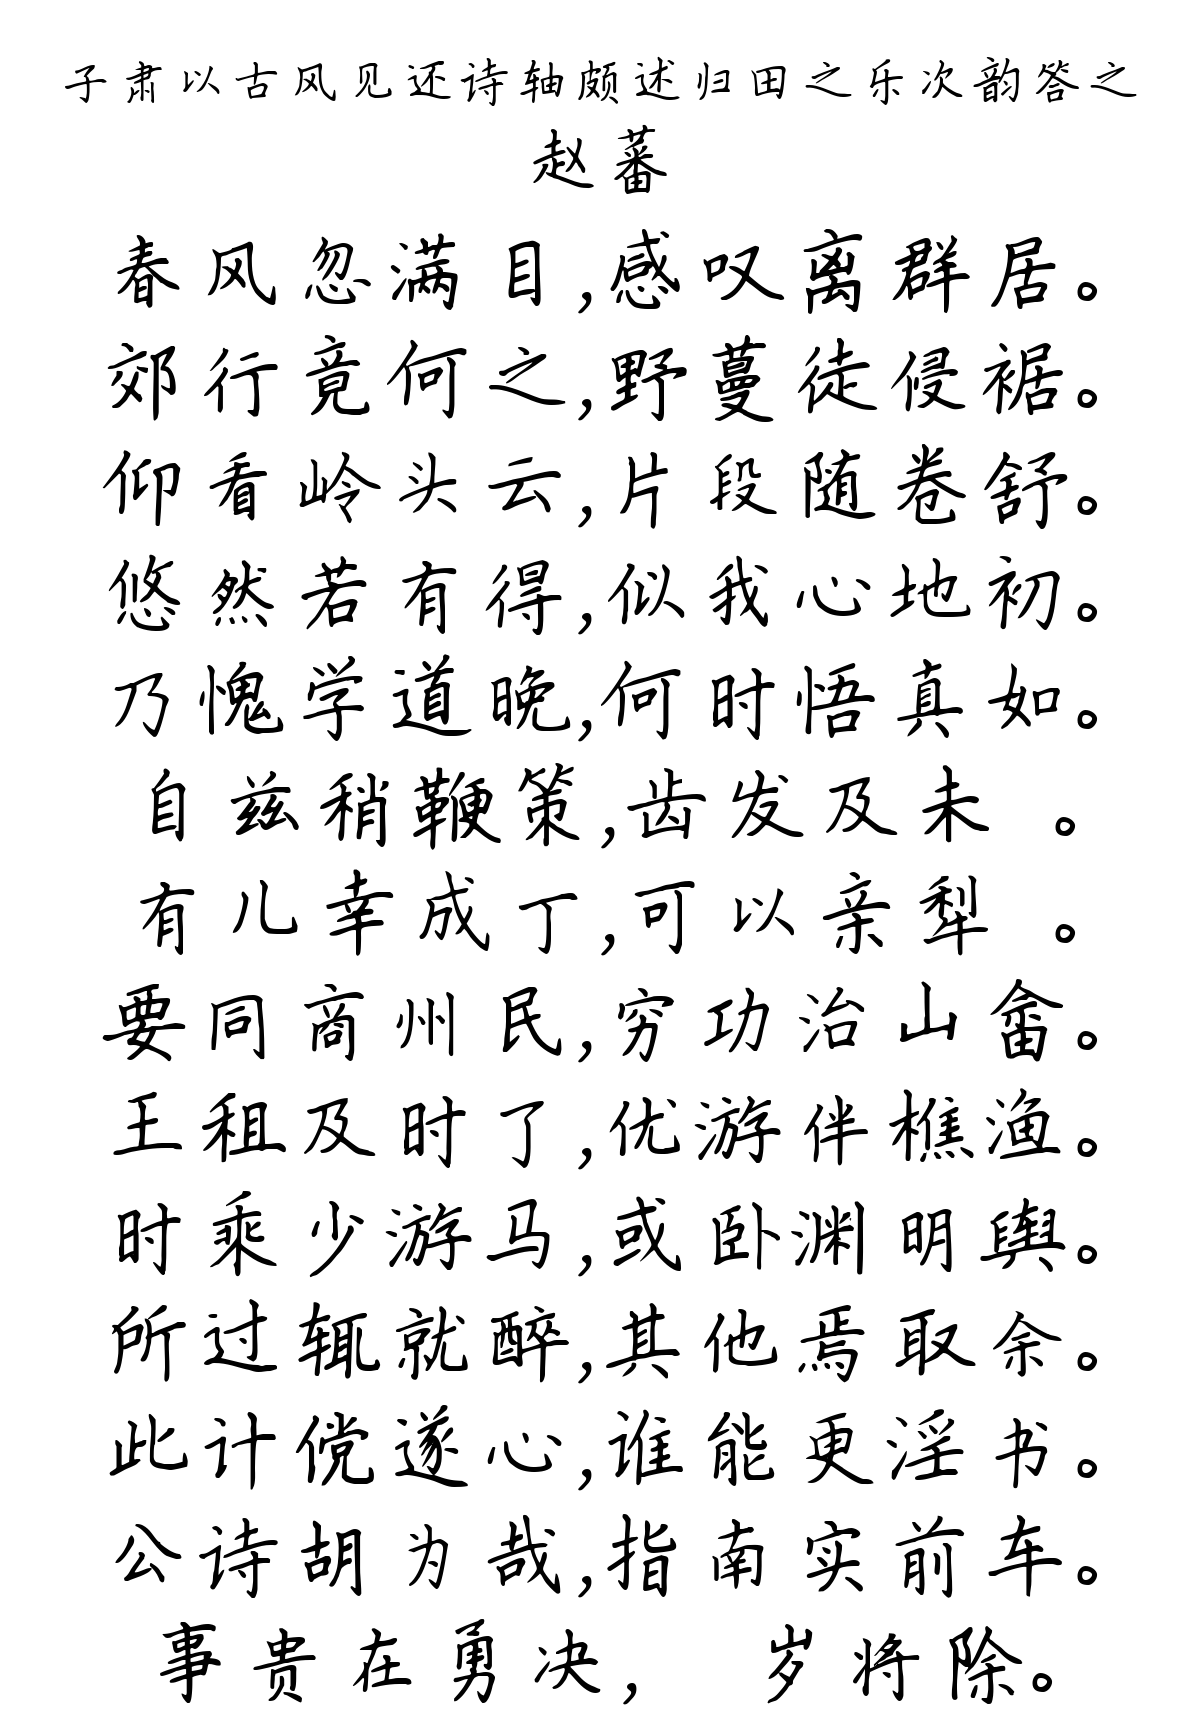 子肃以古风见还诗轴颇述归田之乐次韵答之
赵蕃
春风忽满目,感叹离群居。
郊行竟何之,野蔓徒侵裾。
仰看岭头云,片段随卷舒。
悠然若有得,似我心地初。
乃愧学道晚,何时悟真如。
自兹稍鞭策,齿发及未 。
有儿幸成丁,可以亲犁 。
要同商州民,穷功治山畲。
王租及时了,优游伴樵渔。
时乘少游马,或卧渊明舆。
所过辄就醉,其他焉取余。
此计傥遂心,谁能更淫书。
公诗胡为哉,指南实前车。
事贵在勇决, 岁将除。